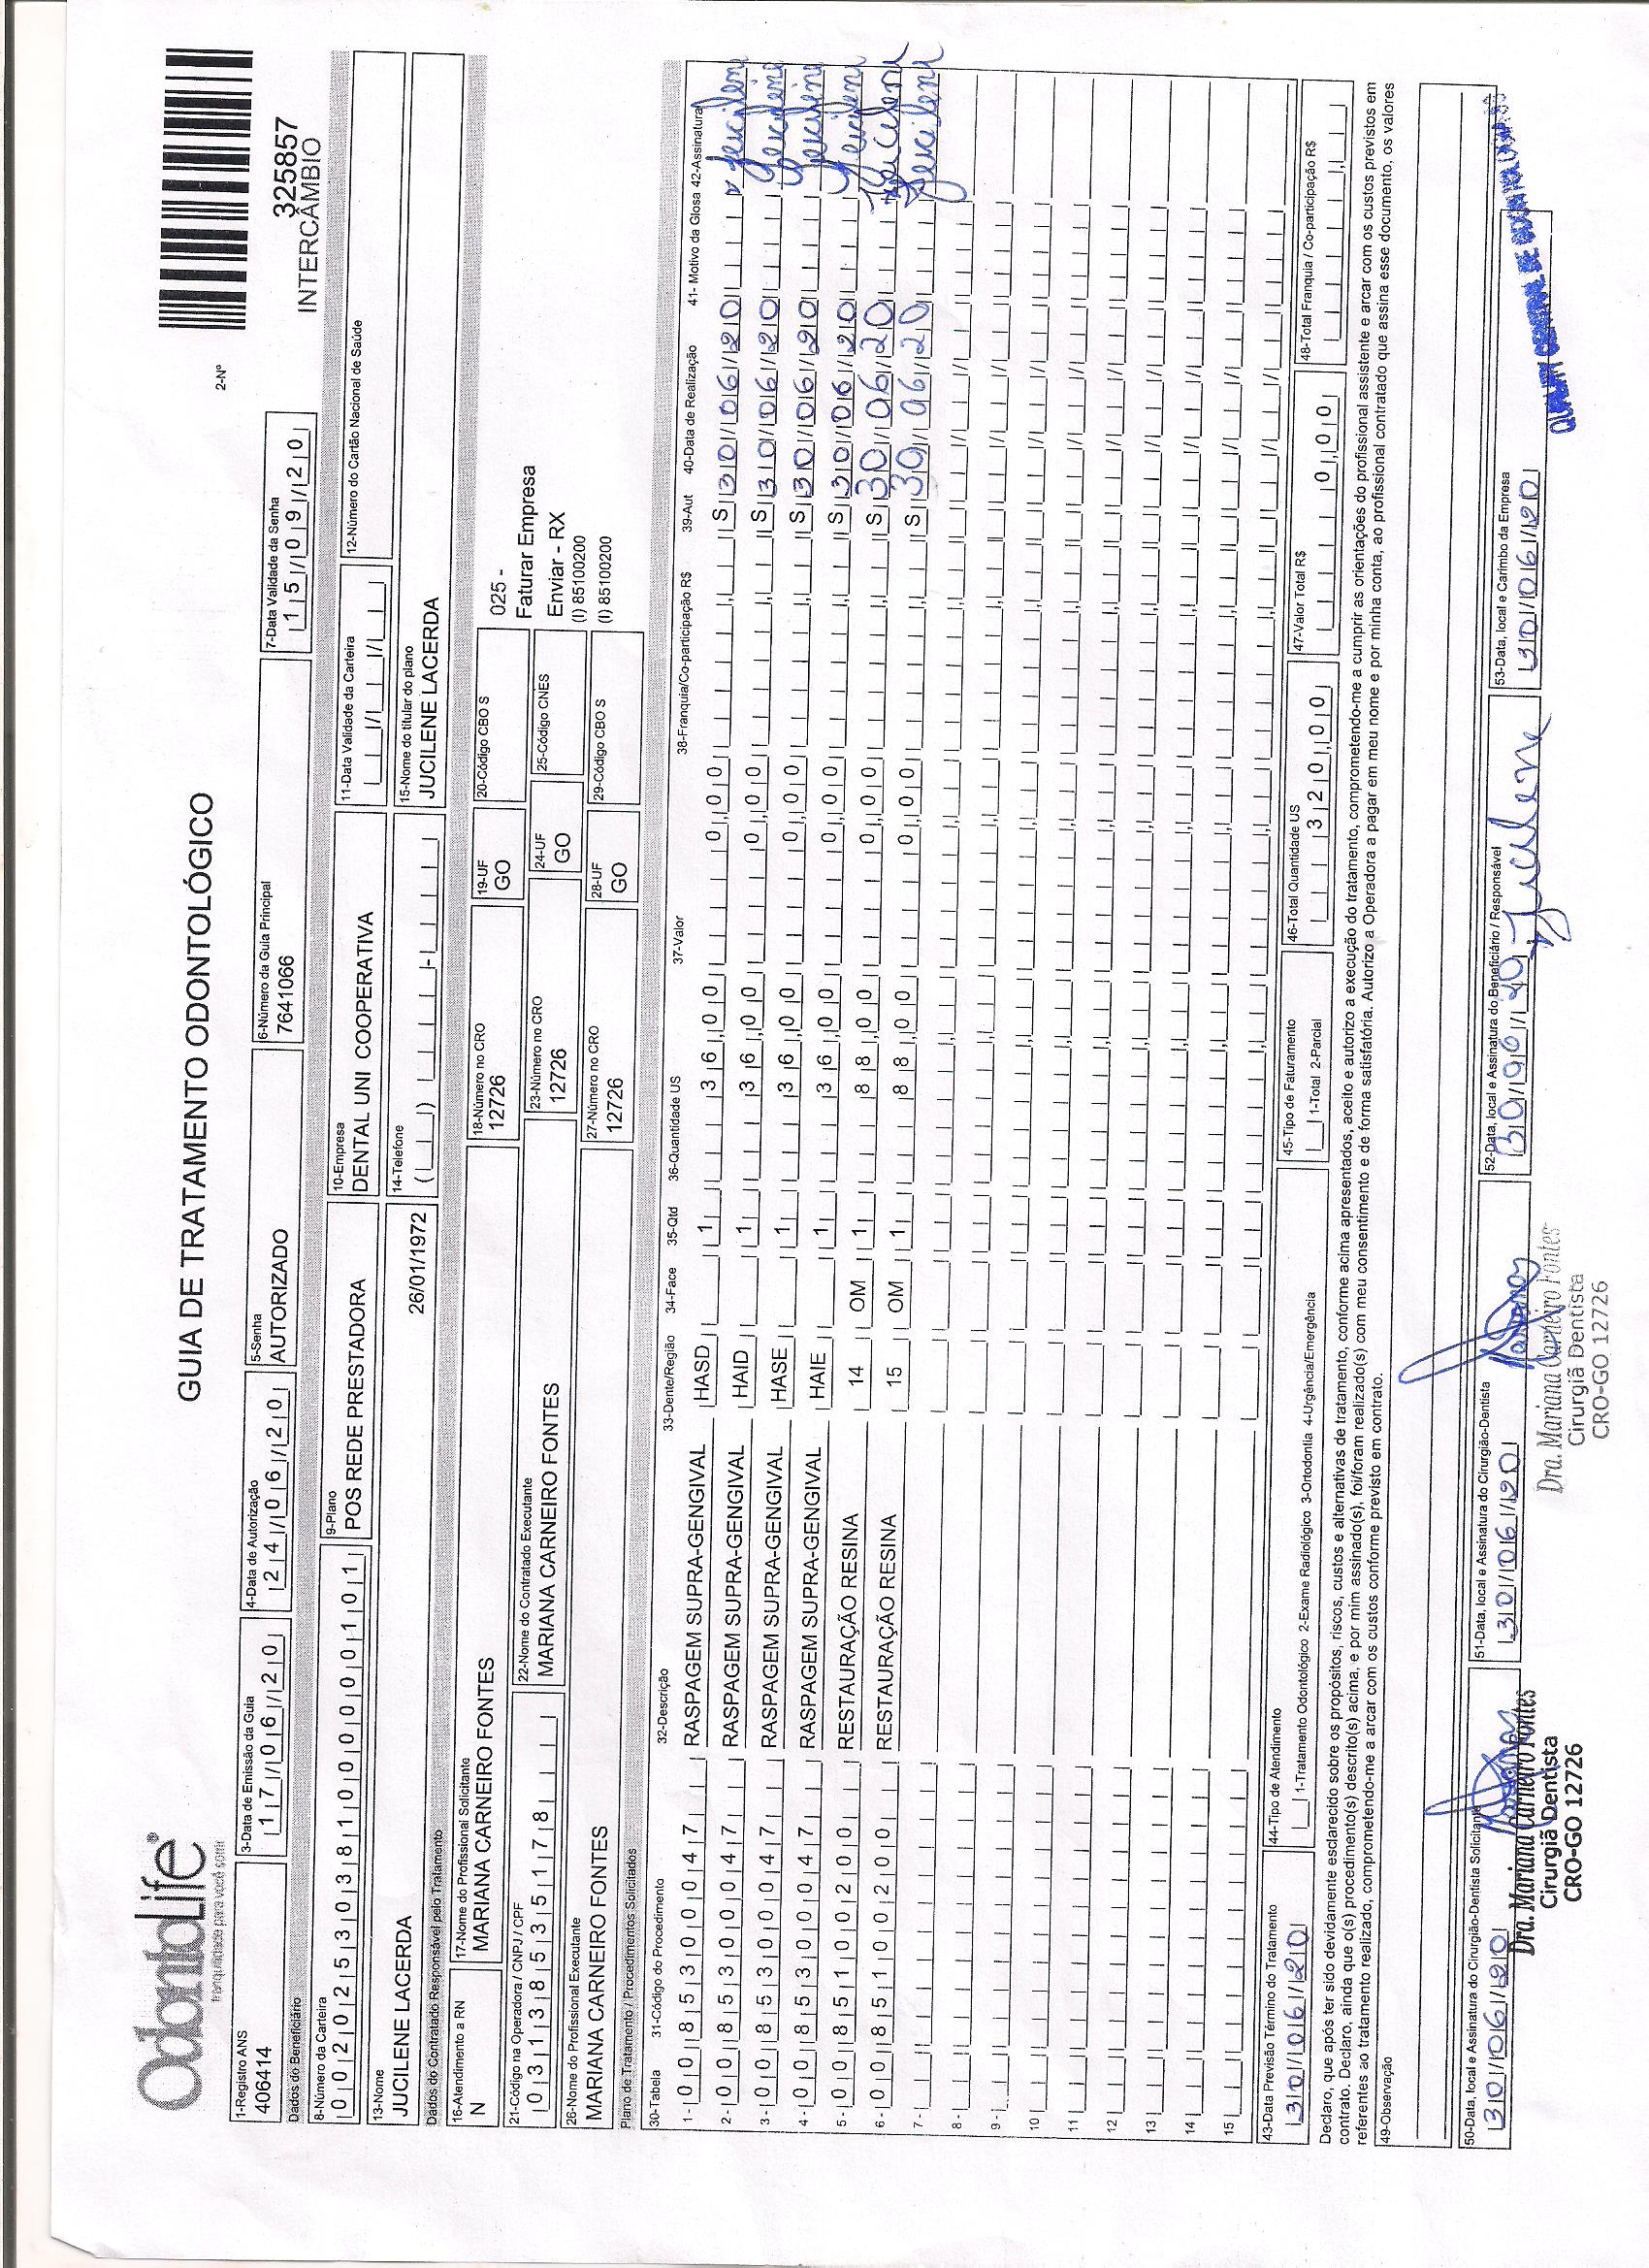 OdontoLife®
tranquilidade para você sorrir
GUIA DE TRATAMENTO ODONTOLÓGICO
2-Nº
325857
INTERCÂMBIO
1-Registro ANS
406414
3-Data de Emissão da Guia
17/06/20
4-Data de Autorização
24/06/20
5-Senha
AUTORIZADO
6-Número da Guia Principal
7641066
7-Data Validade da Senha
15/09/20
Dados do Beneficiário
8-Número da Carteira
002025303810000001101
9-Plano
POS REDE PRESTADORA
10-Empresa
DENTAL UNI COOPERATIVA
11-Data Validade da Carteira
12-Número do Cartão Nacional de Saúde
13-Nome
JUCILENE LACERDA
26/01/1972
14-Telefone
15-Nome do titular do plano
JUCILENE LACERDA
Dados do Contratado Responsável pelo Tratamento
16-Atendimento a RN
N
17-Nome do Profissional Solicitante
MARIANA CARNEIRO FONTES
18-Número no CRO
12726
19-UF
GO
20-Código CBO S
025 -
Faturar Empresa
Enviar - RX
(I) 85100200
(I) 85100200
21-Código na Operadora / CNPJ / CPF
03138535178
22-Nome do Contratado Executante
MARIANA CARNEIRO FONTES
23-Número no CRO
12726
24-UF
GO
25-Código CNES
26-Nome do Profissional Executante
MARIANA CARNEIRO FONTES
27-Número no CRO
12726
28-UF
GO
29-Código CBO S
Plano de Tratamento / Procedimentos Solicitados
30-Tabela 31-Código do Procedimento 32-Descrição 33-Dente/Região 34-Face 35-Qtd 36-Quantidade US 37-Valor 38-Franquia/Co-participação R$ 39-Aut 40-Data de Realização 41- Motivo da Glosa 42-Assinatura
1- 00 85300047 RASPAGEM SUPRA-GENGIVAL HASD 1 36,00 0,00 S 30/06/20 Jucilene
2- 00 85300047 RASPAGEM SUPRA-GENGIVAL HAID 1 36,00 0,00 S 30/06/20 Jucilene
3- 00 85300047 RASPAGEM SUPRA-GENGIVAL HASE 1 36,00 0,00 S 30/06/20 Jucilene
4- 00 85300047 RASPAGEM SUPRA-GENGIVAL HAIE 1 36,00 0,00 S 30/06/20 Jucilene
5- 00 85100200 RESTAURAÇÃO RESINA 14 OM 1 88,00 0,00 S 30/06/20 Jucilene
6- 00 85100200 RESTAURAÇÃO RESINA 15 OM 1 88,00 0,00 S 30/06/20 Jucilene
7-
8-
9-
10
11
12
13
14
15
43-Data Previsão Término do Tratamento
30/06/20
44-Tipo de Atendimento
1-Tratamento Odontológico 2-Exame Radiológico 3-Ortodontia 4-Urgência/Emergência
45-Tipo de Faturamento
1-Total 2-Parcial
46-Total Quantidade US
320,00
47-Valor Total R$
0,00
48-Total Franquia / Co-participação R$
Declaro, que após ter sido devidamente esclarecido sobre os propósitos, riscos, custos e alternativas de tratamento, conforme acima apresentados, aceito e autorizo a execução do tratamento, comprometendo-me a cumprir as orientações do profissional assistente e arcar com os custos previstos em
contrato. Declaro, ainda que o(s) procedimento(s) descrito(s) acima, e por mim assinado(s), foi/foram realizado(s) com meu consentimento e de forma satisfatória. Autorizo a Operadora a pagar em meu nome e por minha conta, ao profissional contratado que assina esse documento, os valores
referentes ao tratamento realizado, comprometendo-me a arcar com os custos conforme previsto em contrato.
49-Observação
50-Data, local e Assinatura do Cirurgião-Dentista Solicitante
30/06/20
Dra. Mariana Carneiro Fontes
Cirurgiã Dentista
CRO-GO 12726
51-Data, local e Assinatura do Cirurgião-Dentista
30/06/20
Dra. Mariana Carneiro Fontes
Cirurgiã Dentista
CRO-GO 12726
52-Data, local e Assinatura do Beneficiário / Responsável
30/06/20 Jucilene
53-Data, local e Carimbo da Empresa
30/06/20